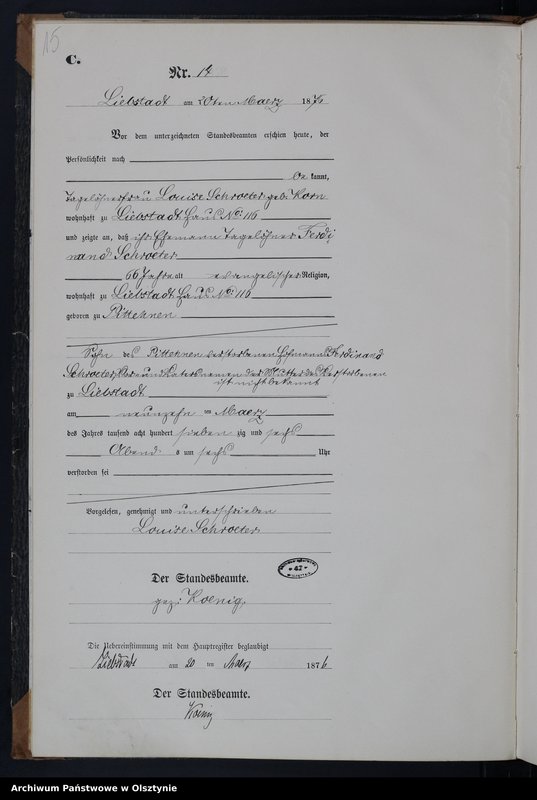 15
C.
Nr. 14
Liebstadt am 20ten Maerz 1876
Vor dem unterzeichneten Standesbeamten erschien heute, der
Persönlichkeit nach
be kannt,
Tagelöhnerfrau Louise Schroeter geb. Korn
wohnhaft zu Liebstadt Haus No: 116
und zeigte an, daß ihr Ehemann Tagelöhner Ferdi
nand Schroeter
66 Jahre alt evangelischer Religion,
wohnhaft zu Liebstadt Haus No: 116
geboren zu Pittehnen
Sohn des Pittehnen verstorbenen Hofmann Ferdinand
Schroeter, Vor- und Vatersnamen der Mutter des Verstorbenen
ist nicht bekannt
zu Liebstadt
am neunzehn ten Maerz
des Jahres tausend acht hundert sieben zig und sechs
Abend s um sechs Uhr
verstorben sei
Vorgelesen, genehmigt und unterschrieben
Louise Schroeter
Der Standesbeamte.
gez: Koenig.
Die Uebereinstimmung mit dem Hauptregister beglaubigt
Liebstadt am 20 ten Maerz 1876
Der Standesbeamte.
Koenig
Archiwum Państwowe w Olsztynie